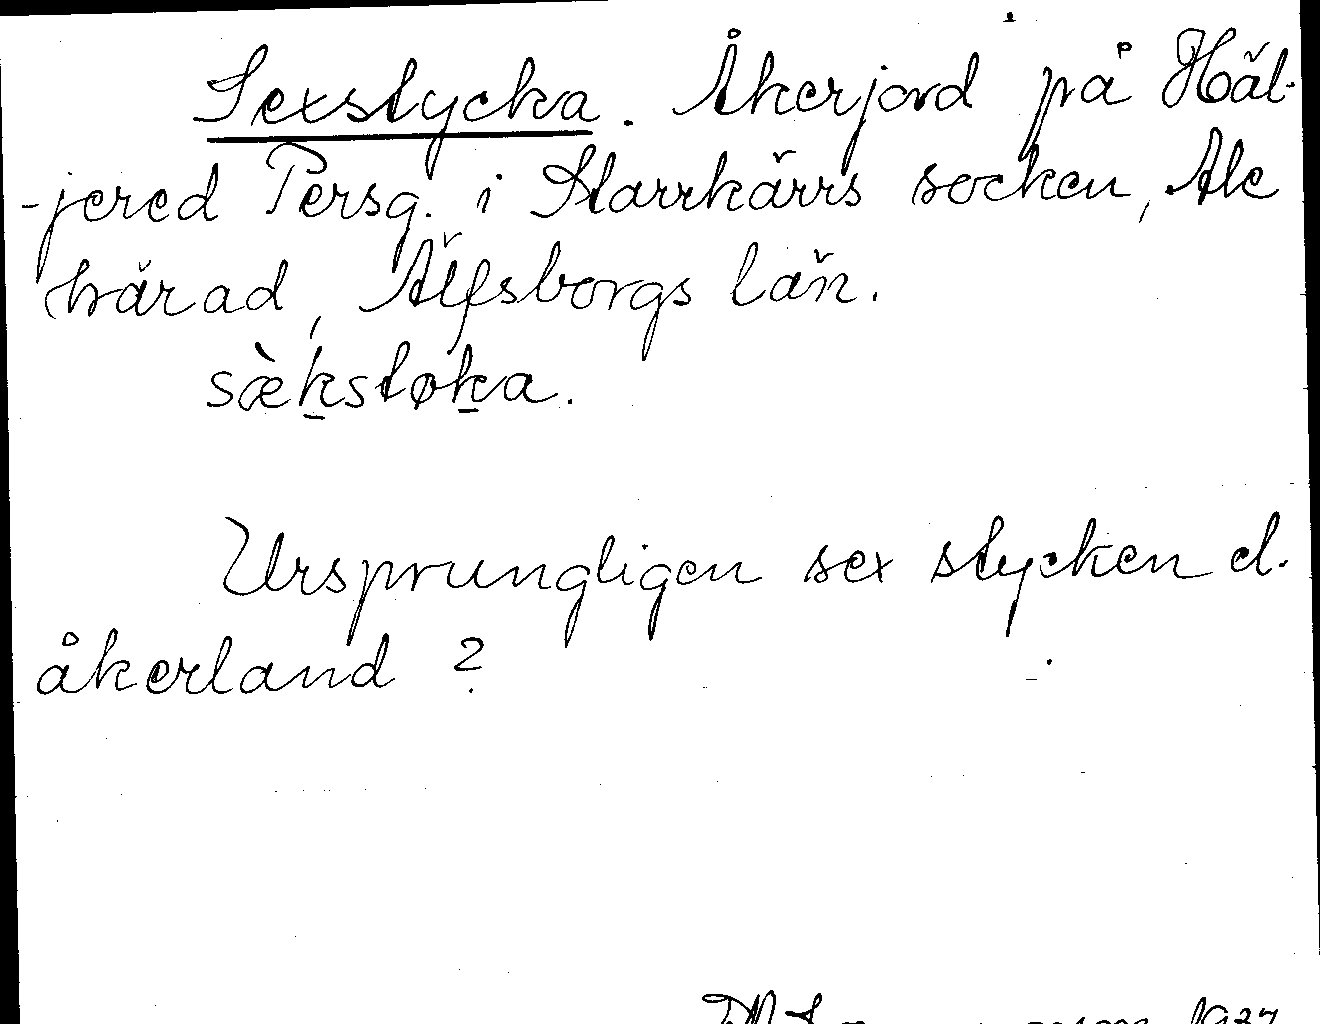 Sexstycka. Åkerjord på Häl-
-jered Persg. i Starrkärrs socken, Ale
härad, Älfsborgs län.
sæ̀k̲støk̲a.
Ursprungligen sex stycken el.
åkerland?
1927